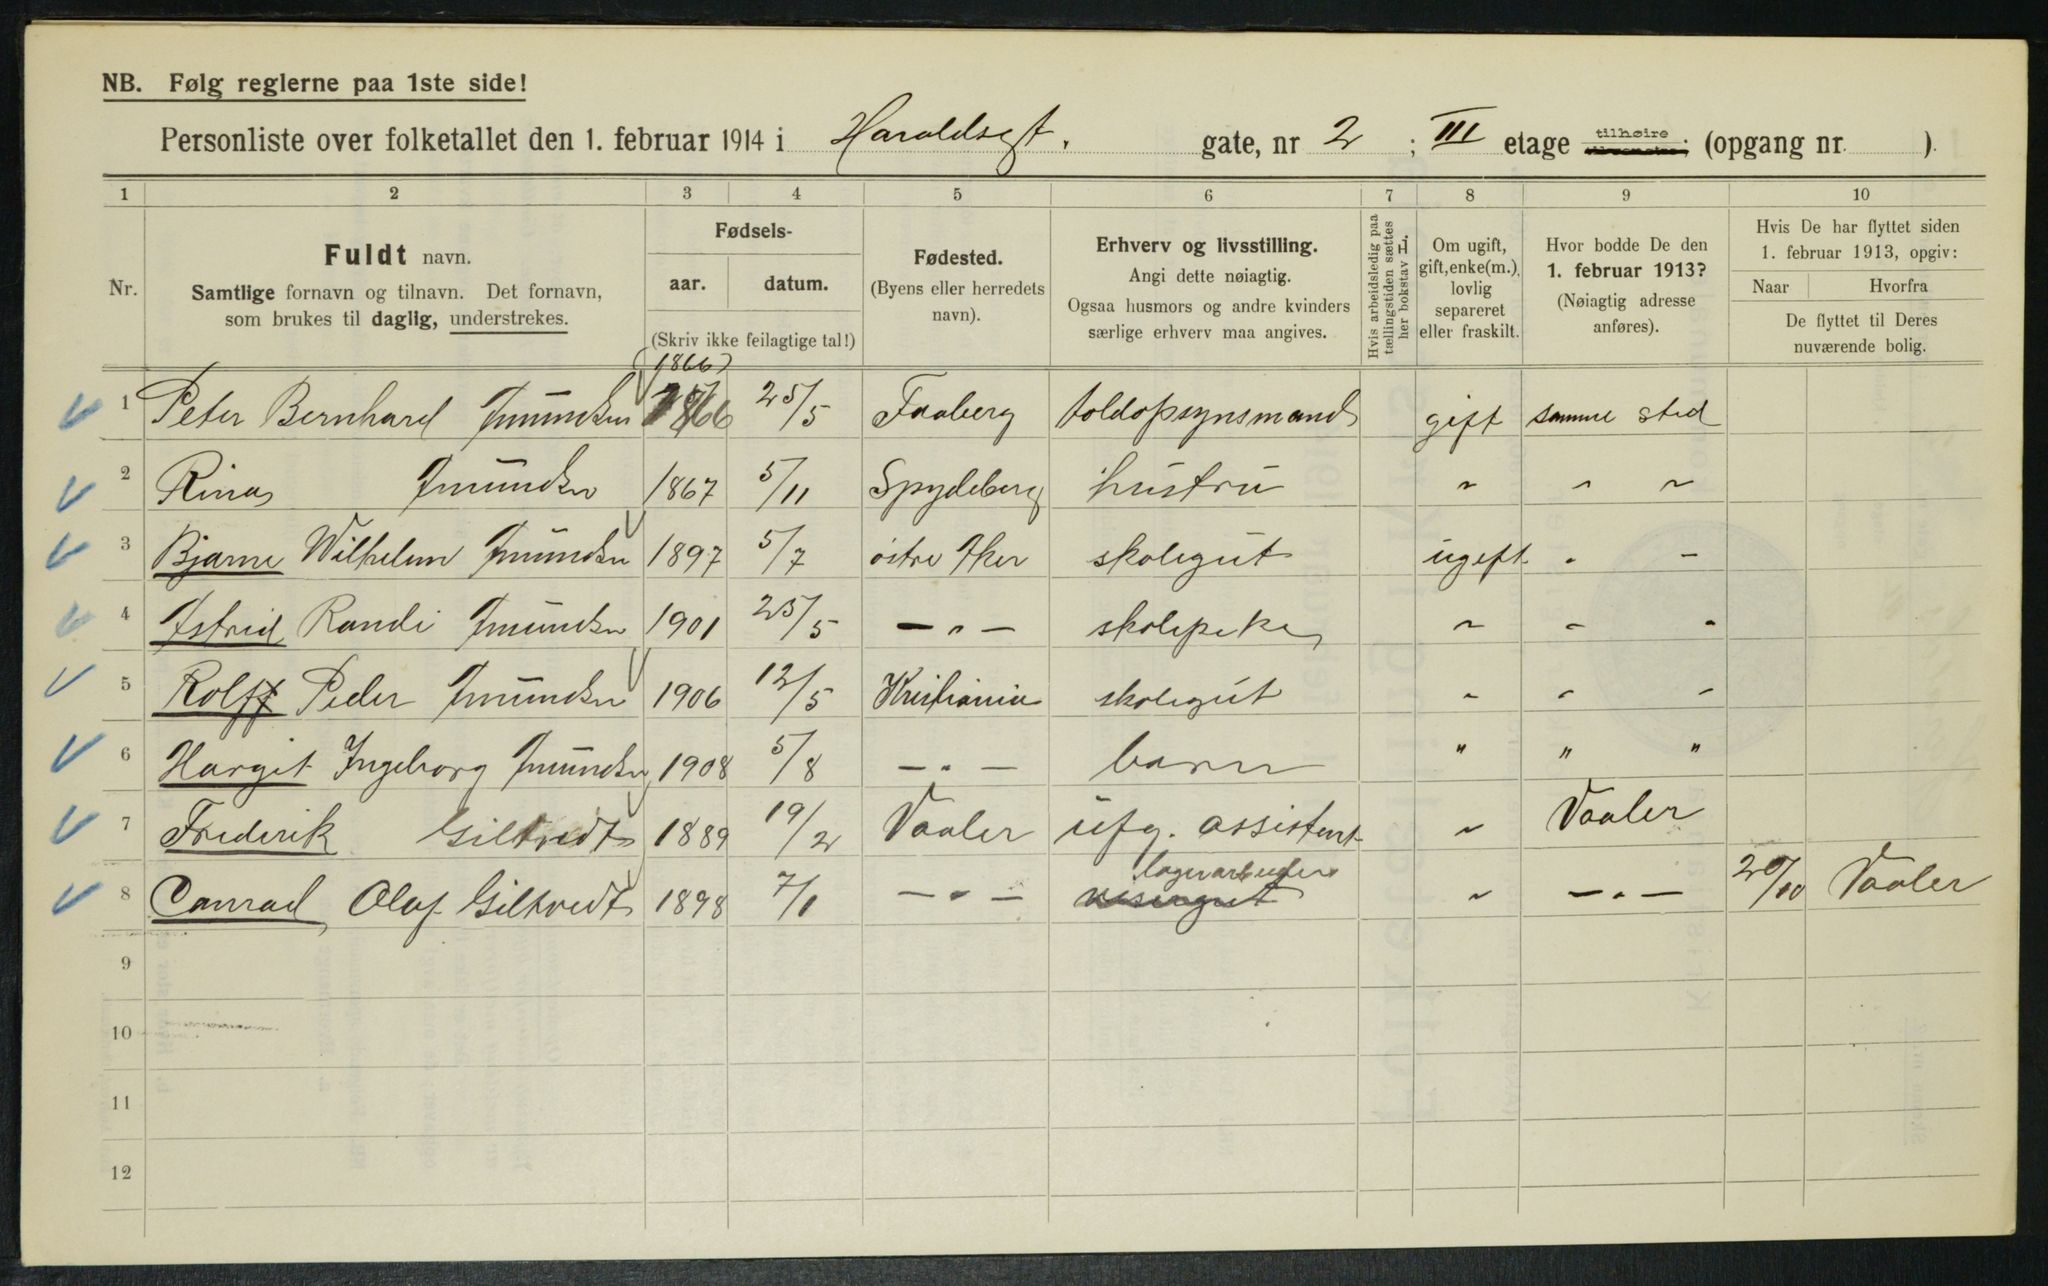 NB. Følg reglerne paa 1ste side!
Personliste over folketallet den 1. februar 1914 i Haraldsgt. gate, nr 2 ; III etage tilhøire (opgang nr. ).
1 2 3 4 5 6 7 8 9 10
Nr.
Fuldt navn.
Samtlige fornavn og tilnavn. Det fornavn,
som brukes til daglig, understrekes.
Fødsels-
aar. datum.
(Skriv ikke feilagtige tal!)
Fødested.
(Byens eller herredets
navn).
Erhverv og livsstilling.
Angi dette nøiagtig.
Ogsaa husmors og andre kvinders
særlige erhverv maa angives.
Hvis arbeidsledig paa
tællingstiden sættes
her bokstav L.
Om ugift,
gift, enke(m.),
lovlig
separeret
eller fraskilt.
Hvor bodde De den
1. februar 1913?
(Nøiagtig adresse
anføres).
Hvis De har flyttet siden
1. februar 1913, opgiv:
Naar Hvorfra
De flyttet til Deres
nuværende bolig.
(1866)
1 Peter Bernhard Amundsen 1866 25/5 Faaberg toldopsynsmand gift samme sted
2 Rina Amundsen 1867 5/11 Spydeberg hustru " " "
3 Bjarne Wilhelm Amundsen 1897 5/7 østre Aker skolegut ugift " "
4 Astrid Randi Amundsen 1901 25/5 — " — skolepike " " "
5 Rolf Peder Amundsen 1906 12/5 Kristiania skolegut " " "
6 Hargit Ingeborg Amundsen 1908 5/8 — " — barn " " "
7 Frederik Giltvedt 1889 19/2 Vaaler ufg. assistent " Vaaler
8 Conrad Olaf Giltvedt 1898 7/1 — " — lagerarbeider visergut " — " — 20/10 Vaaler
9
10
11
12